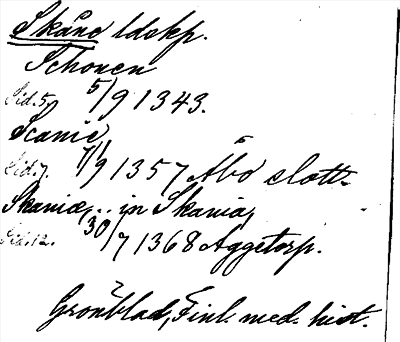 Skåne ldskp.
Schonen
Sid. 5. 5/9 1343.
Scanie
Sid. 7. 7/9 1357 Åbo slott.
Skaniæ, .. in Skania,
Sid. 12. 30/7 1368 Aggetorp.
Grönblad, Finl. med. hist.